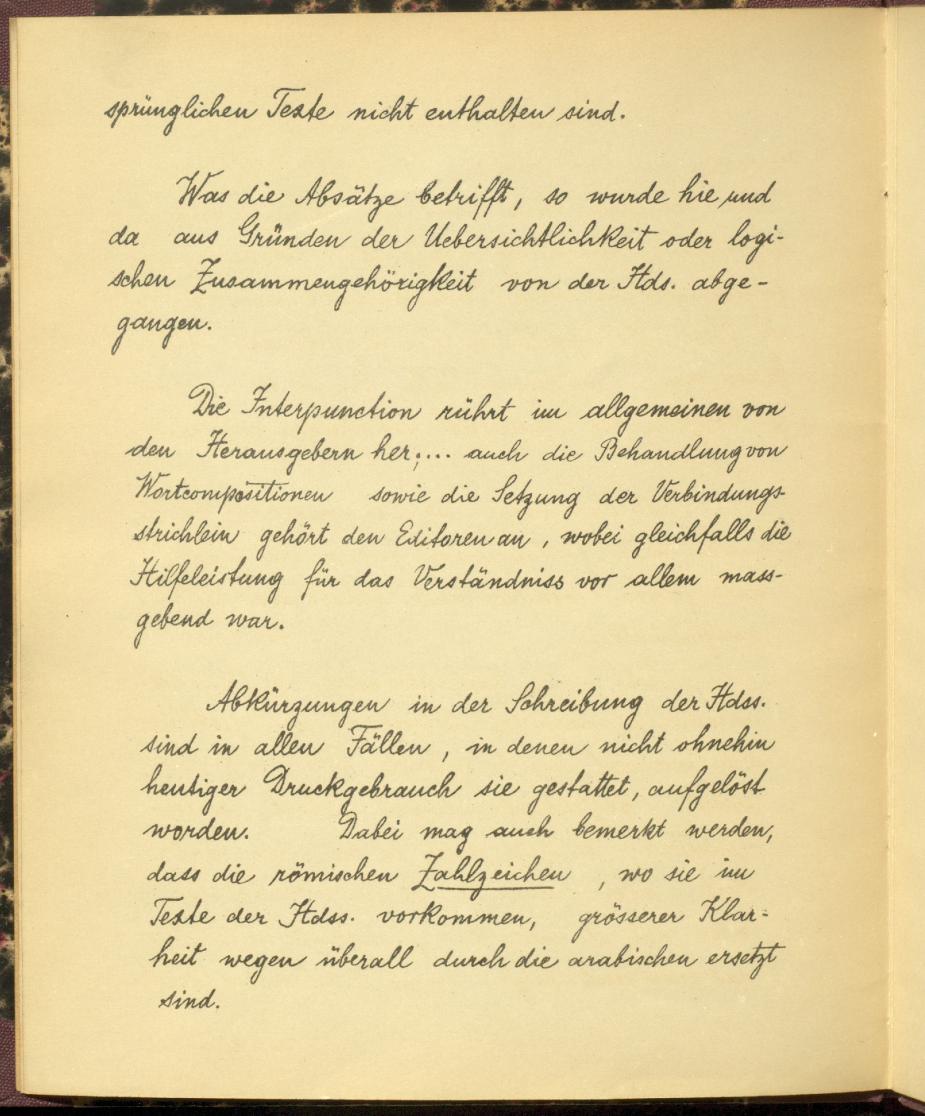 sprünglichen Texte nicht enthalten sind.
Was die Absätze betrifft, so wurde hie und
da aus Gründen der Uebersichtlichkeit oder logi-
schen Zusammengehörigkeit von der Hds. abge-
gangen.
Die Interpunction rührt im allgemeinen von
den Herausgebern her;... auch die Behandlung von
Wortcompositionen sowie die Setzung der Verbindungs-
strichlein gehört den Editoren an, wobei gleichfalls die
Hilfeleistung für das Verständniss vor allem mass-
gebend war.
Abkürzungen in der Schreibung der Hdss.
sind in allen Fällen, in denen nicht ohnehin
heutiger Druckgebrauch sie gestattet, aufgelöst
worden. Dabei mag auch bemerkt werden,
dass die römischen Zahlzeichen, wo sie im
Texte der Hdss. vorkommen, grösserer Klar-
heit wegen überall durch die arabischen ersetzt
sind.